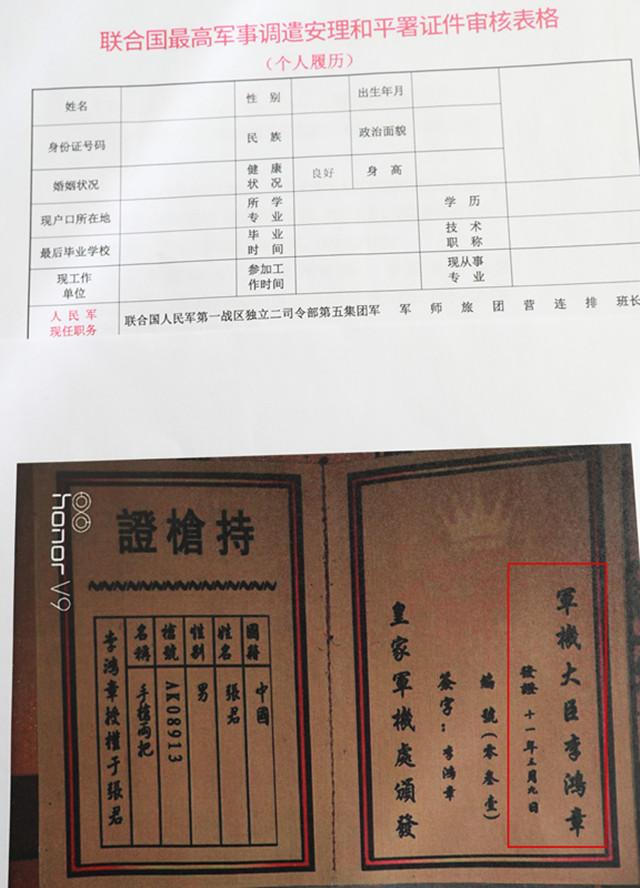 联合国最高军事调遣安理和平署证件审核表格
(个人履历)
姓名 性 别 出生年月
身份证号码 民 族 政治面貌
婚姻状况 健 康 状 况 良好 身 高
现户口所在地 所 学 专 业 学 历
最后毕业学校 毕 业 时 间 技 术 职 称
现工作 单位 参加工 作时间 现从事 专 业
人 民 军 现任职务 联合国人民军第一战区独立二司令部第五集团军 军 师 旅 团 营 连 排 班长
honor V9
持槍證
國籍 中國
姓名 張君
性别 男
槍號 AK08913
名稱 手槍兩把
李鴻章授權于張君
軍機大臣李鴻章
發證 十一年三月九日
編號(零叁壹)
簽字:李鴻章
皇家軍機處頒發